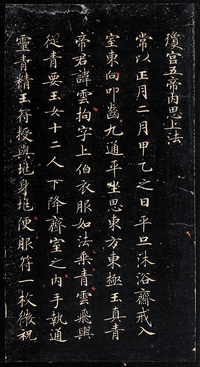 瓊宮五帝内思上法
常以正月二月甲乙之日平旦沐浴齋戒入
室東向叩齒九通平坐思東方東極玉真青
帝君諱雲拘字上伯衣服如法乘青雲飛輿
從青要玉女十二人下降齋室之内手執通
靈青精玉符授與兆身兆便服符一枚微祝